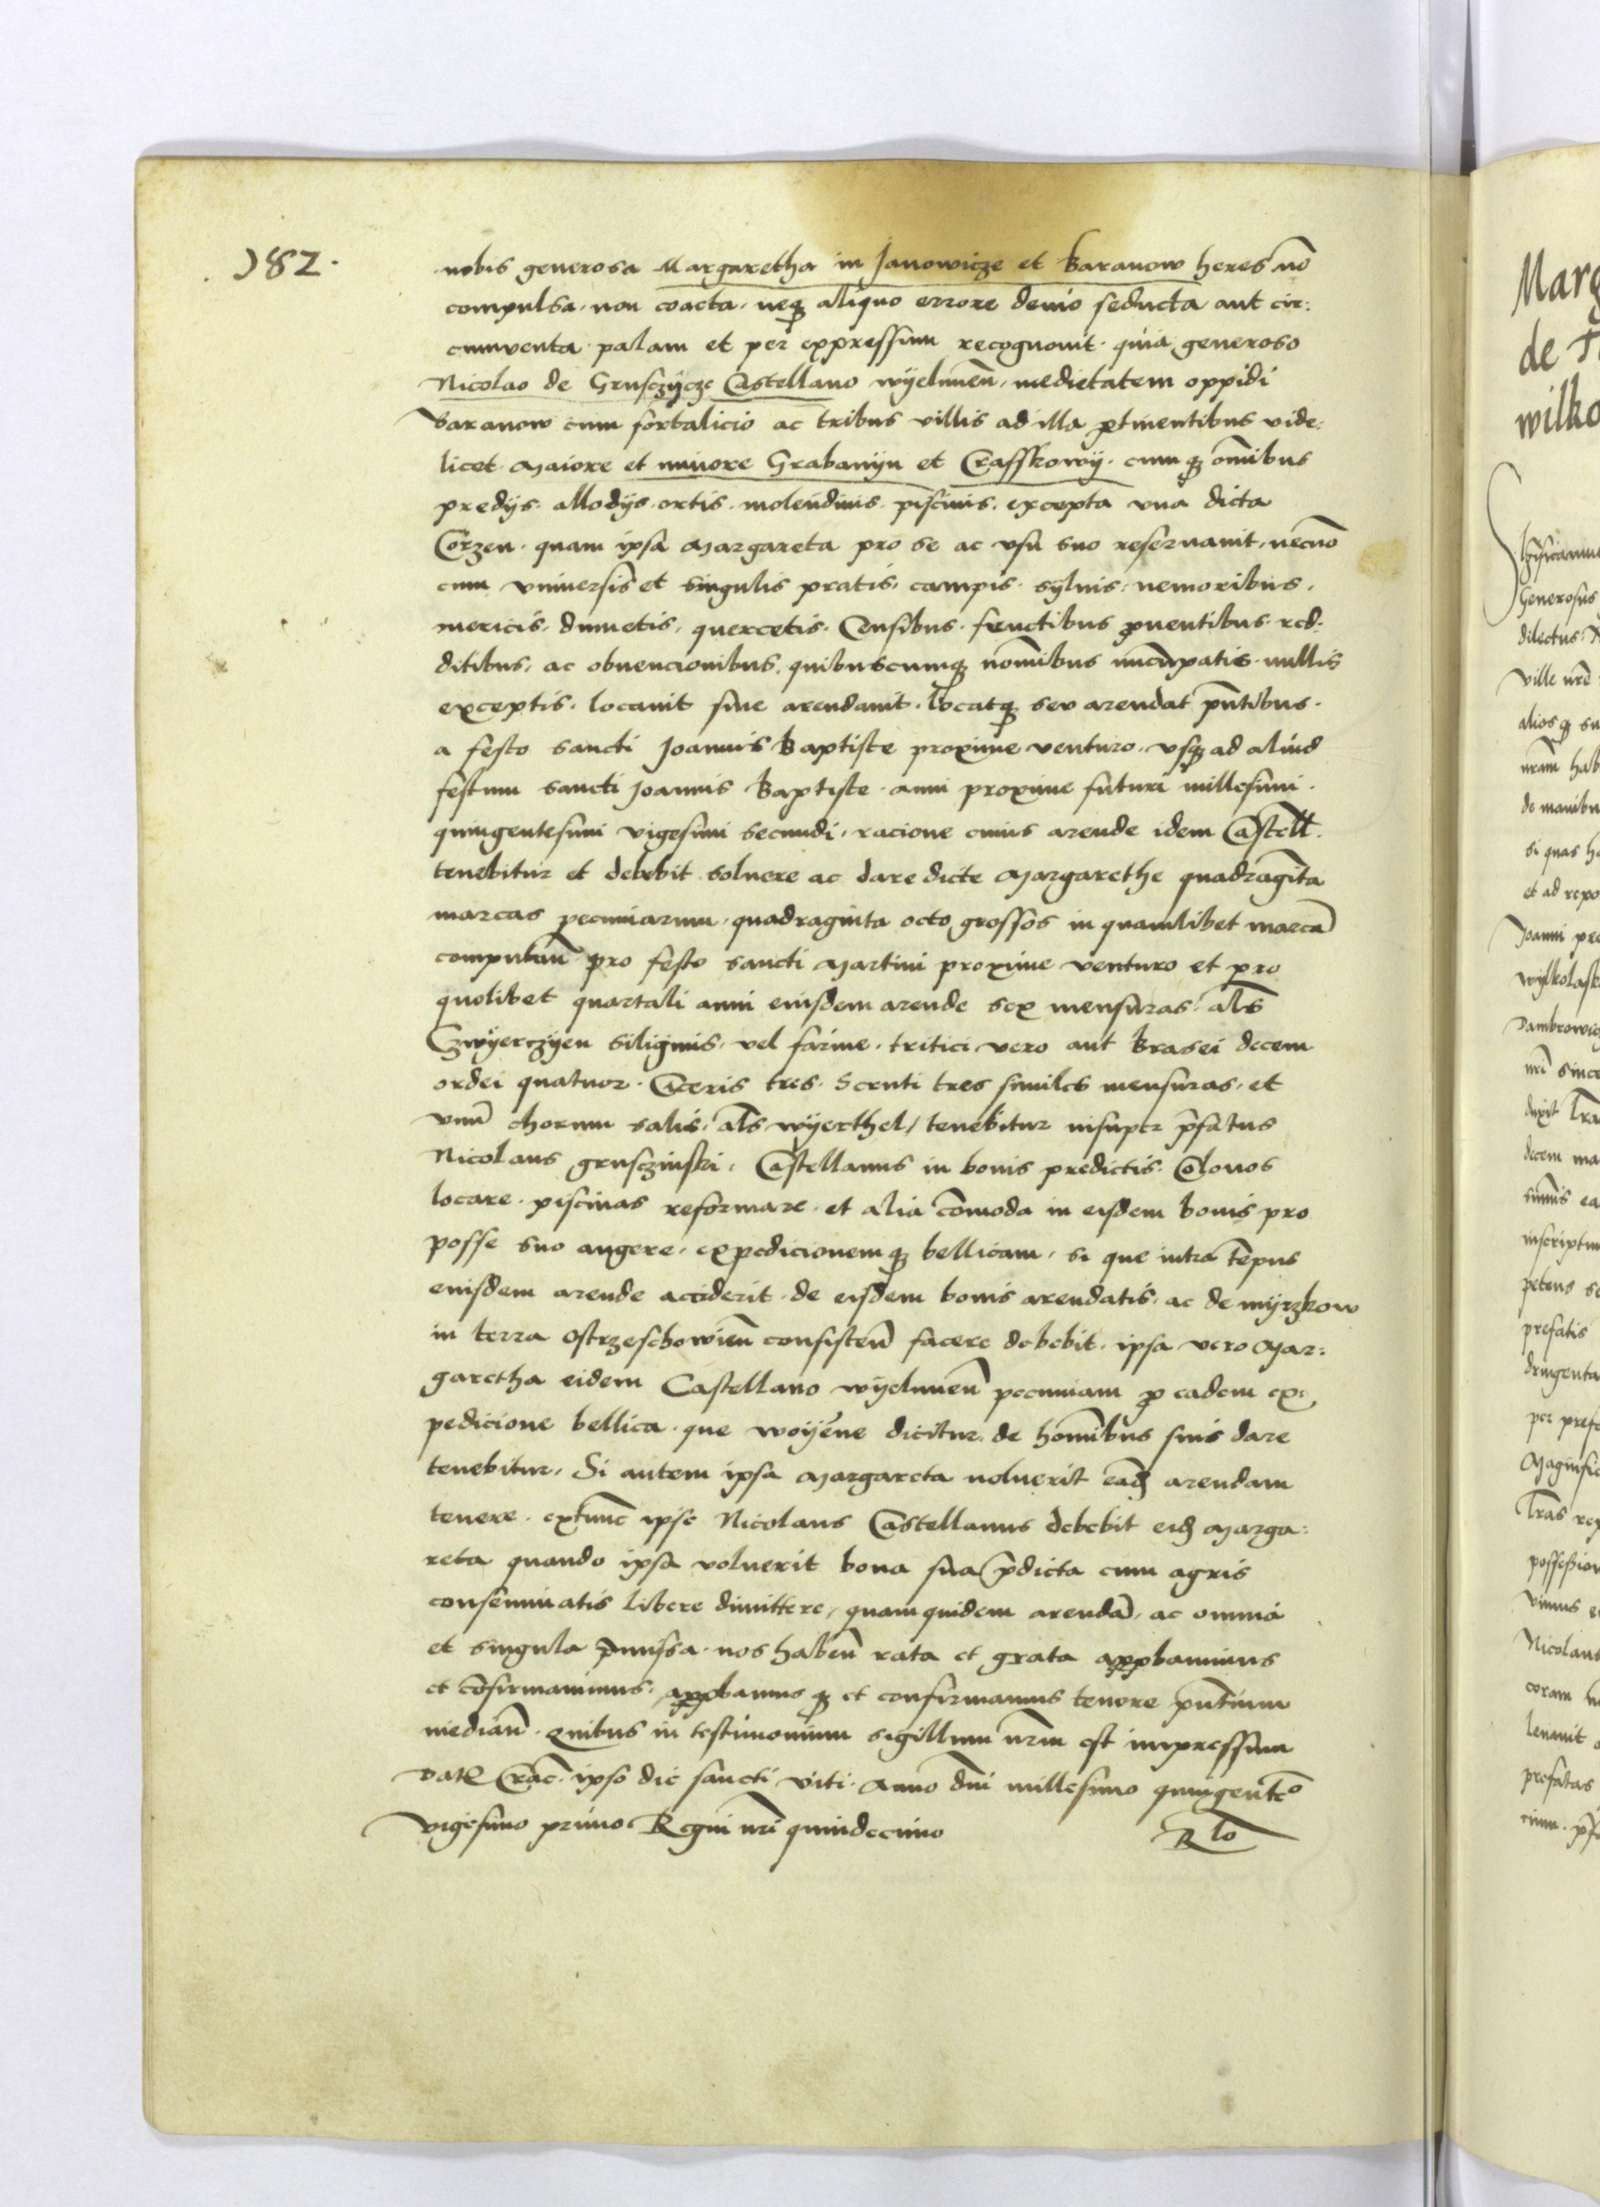 182.
nobis generosa Margaretha in Janowicze et Baranow heres nō
compulsa. non coacta. neqꝫ aliquo errore deuio seducta aut cir:
cumuenta. palam et per expressum recognouit. quia generoso
Nicolao de Grusczycze Castellano wyelunēn. medietatem oppidi
Baranow cum fortalicio ac tribus villis ad illa ꝑtinentibus vide:
licet Maiore et minore Grabanyn et Crasskowy. cumqꝫ om̄ibus
predijs. allodijs. ortis. molendinis. piscinis. excepta vna dicta
Corzen. quam ipsa Margareta pro se ac vsu suo reseruauit, necnō
cum vniuersis et singulis pratis, campis. syluis. nemoribus,
mericis, dumetis, quercetis. Censibus. fructibus ꝓuentibus. red:
ditibus, ac obuencionibus, quibuscumqꝫ nom̄ibus nuncupatis. nullis
exceptis. locauit siue arendauit. locatqꝫ seu arendat pn̄tibus.
a festo sancti Joannis Baptiste proxime venturo. vsqꝫ ad aliud
festum sancti Joannis Baptiste. anni proxime futuri millesimi.
quingentesimi vigesimi secundi, racione cuius arende idem Castell.
tenebitur et debebit soluere ac dare dicte Margarethe quadragīta
marcas pecuniarum, quadraginta octo grossos in quamlibet marcā
computan̄ pro festo sancti Martini proxime venturo et pro
quolibet quartali anni eiusdem arende sex mensuras. al̄s
Czwyerczyen siliginis, vel farine. tritici vero aut Brasei decem
ordei quatuor. Ciceris tres. Scruti tres similes mensuras. et
vnū chorum salis, al̄s wyerthel, tenebitur insuper p̄fatus
Nicolaus grusczinski, Castellanus in bonis predictis. Colonos
locare. piscinas reformare. et alia cōmoda in eisdem bonis pro
posse suo augere, expedicionemqꝫ bellicam, si que intra tēpus
eiusdem arende acciderit. de eisdem bonis arendatis. ac de myrzkow
in terra Ostrzeschowien̄ consisten̄ facere debebit. ipsa vero Mar:
garetha eidem Castellano wyelunen̄ pecuniam ꝓ eadem ex:
pedicione bellica. que woyēne dicitur. de hom̄ibus suis dare
tenebitur, Si autem ipsa Margareta noluerit eād̄ arendam
tenere. extunc ipse Nicolaus Castellanus debebit eid̄ Marga:
reta quando ipsa voluerit bona sua p̄dicta cum agris
conseminatis libere dimittere, quamquidem arendā, ac omnia
et singula p̄missa. nos haben̄ rata et grata apꝓbauimus
et cōfirmauimus. apꝓbamusqꝫ et confirmamus tenore pn̄tium
median̄. Quibus in testimonium sigillum nr̄m est impressum
Dat̄ Crac̄. ipso die sancti Viti. Anno dn̄i millesimo quingentē°
vigesimo primo. Regni nr̄i quindecimo
R lō